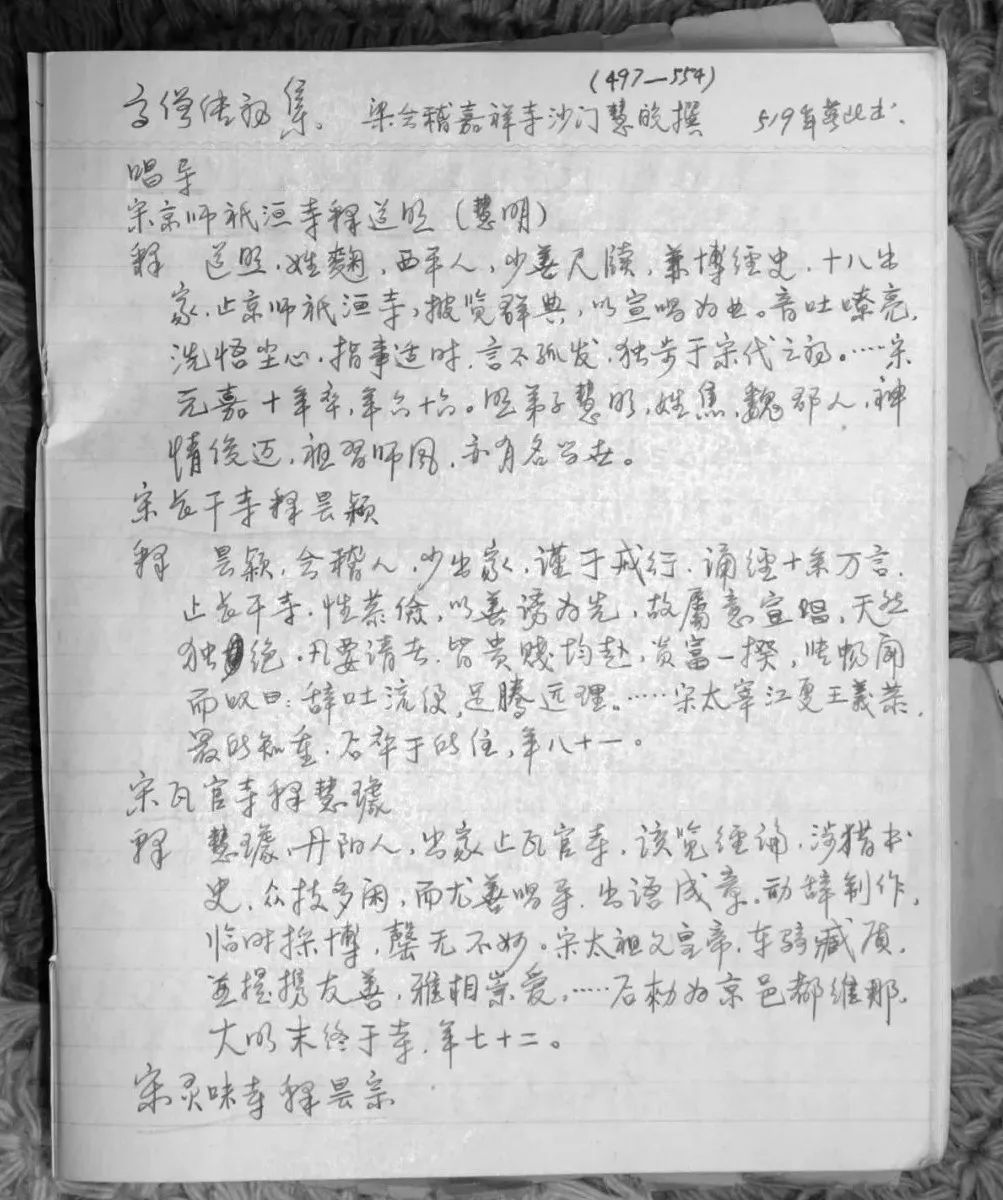 (497—554)
高僧传初集。 梁会稽嘉祥寺沙门慧皎撰 519年
唱导
宋京师祇洹寺释道照（慧明）
释 道照，姓麴，西平人，少善尺牍，兼博经史，十八出
家，止京师祇洹寺，披览群典，以宣唱为业。音吐嘹亮，
洗悟尘心，指事适时，言不孤发，独步于宋代之初。……宋
元嘉十年卒，年六十六。照弟子慧明，姓焦，魏郡人，神
情俊迈，祖习师风，亦有名当世。
宋长干寺释昙颖
释 昙颖，会稽人，少出家，谨于戒行，诵经十余万言，
止长干寺，性恭俭，以善诱为先，故属意宣唱，天然
独绝，凡要请者，皆贵贱均赴，贫富一揆，张畅闻
而叹曰：辞吐流便，足腾远理。……宋太宰江夏王義恭，
最所知重，后卒于所住，年八十一。
宋瓦官寺释慧璩
释 慧璩，丹阳人，出家止瓦官寺，该览经论，涉猎书
史，众技多闲，而尤善唱导，出语成章，动辞制作，
临时采博，罄无不妙。宋太祖文皇帝，车骑臧质，
並提携友善，雅相崇爱，……后勅为京邑都维那，
大明末终于寺，年七十二。
宋灵味寺释昙宗